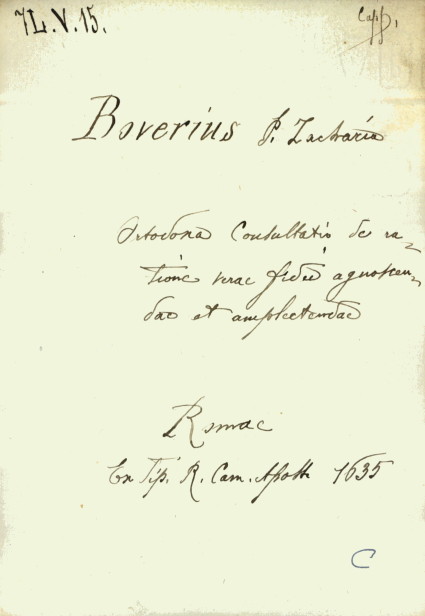 7L.V.15.
Capp.
Boverius P. Zacharia
Ortodoxa Consultatio de ra-
tione verae fidei agnoscen-
dae et amplectendae
Romae
Ex Tip. R. Cam. Apost. 1635
C